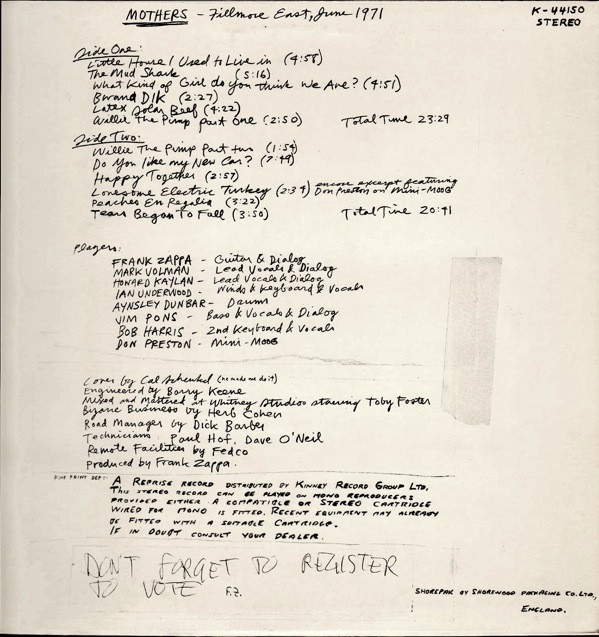 MOTHERS - Fillmore East, June 1971
K-44150
STEREO
Side One:
Little House I Used to Live in (4:58)
The Mud Shark (5:16)
What Kind of Girl do you think We Are? (4:51)
Bwana Dik (2:27)
Latex Solar Beef (4:22)
Willie The Pimp Part One (2:50) Total Time 23:29
Side Two:
Willie The Pimp Part two (1:54)
Do You like my New Car? (7:49)
Happy Together (2:57)
Lonesome Electric Turkey (2:34) encore excerpt featuring Don Preston on Mini-MOOG
Peaches En Regalia (3:22)
Tears Began To Fall (3:50) Total Time 20:41
Players:
FRANK ZAPPA - Guitar & Dialog
MARK VOLMAN - Lead Vocals & Dialog
HOWARD KAYLAN - Lead Vocals & Dialog
IAN UNDERWOOD - Winds & Keyboard & Vocals
AYNSLEY DUNBAR - Drums
JIM PONS - Bass & Vocals & Dialog
BOB HARRIS - 2nd Keyboard & Vocals
DON PRESTON - Mini-MOOG
Cover by Cal Schenkel (he made me do it)
Engineered by Barry Keene
Mixed and Mastered at Whitney Studios starring Toby Foster
Bizarre Business by Herb Cohen
Road Manager by Dick Barber
Technicians Paul Hof, Dave O'Neil
Remote Facilities by Fedco
Produced by Frank Zappa.
FINE PRINT DEPT:
A REPRISE RECORD DISTRIBUTED BY KINNEY RECORD GROUP LTD.
THIS STEREO RECORD CAN BE PLAYED ON MONO REPRODUCERS
PROVIDED EITHER A COMPATIBLE OR STEREO CARTRIDGE
WIRED FOR MONO IS FITTED. RECENT EQUIPMENT MAY ALREADY
BE FITTED WITH A SUITABLE CARTRIDGE.
IF IN DOUBT CONSULT YOUR DEALER.
DON'T FORGET TO REGISTER
TO VOTE F.Z.
SHOREPAK BY SHOREWOOD PACKAGING CO. LTD.,
ENGLAND.